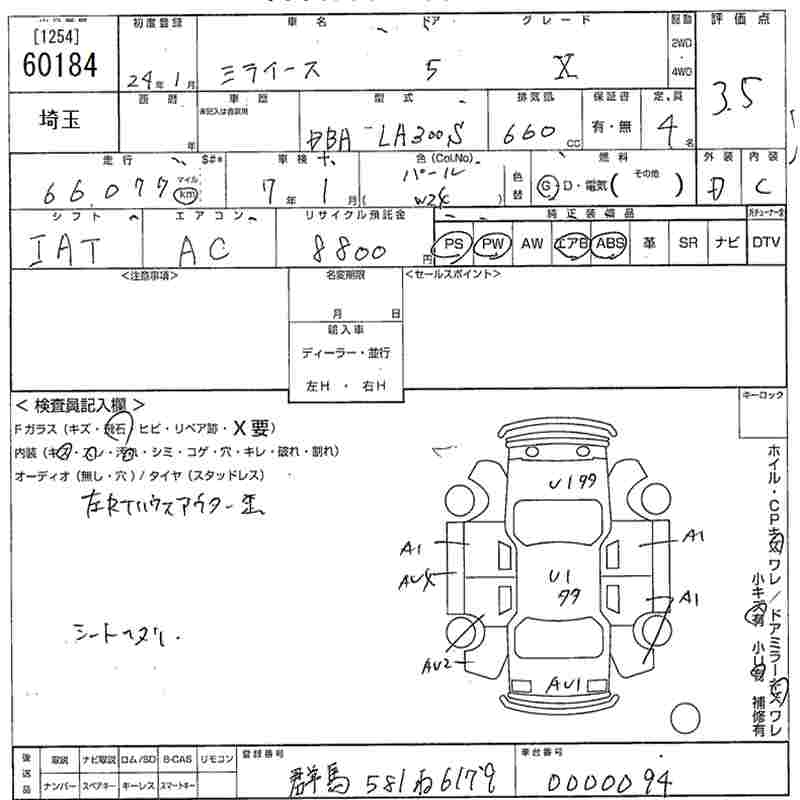 [1254]
60184
埼玉
初度登録
24年1月
車名
ミライース
ドア
5
グレード
X
駆動
2WD
4WD
評価点
3.5
距暦
年
車歴
未記入は自家用
型式
DBA-LA300S
排気量
660cc
保証書
有・無
定員
4名
走行
66,077
マイル
km
S#*
車検
7年1月
色(Col.No)
パール
W24
色替
燃料
G・D・電気( その他 )
外装
D
内装
C
シフト
IAT
エアコン
AC
リサイクル預託金
8800円
純正装備品
PS PW AW エアB ABS 革 SR ナビ DTV
<注意事項>
名変期限
月 日
輸入車
ディーラー・並行
左H・右H
<セールスポイント>
<検査員記入欄>
Fガラス(キズ・飛石・ヒビ・リペア跡・X要)
内装(キズ・スレ・汚れ・シミ・コゲ・穴・キレ・破れ・割れ)
オーディオ(無し・穴)/タイヤ(スタッドレス)
左RTハウスアウター歪
シートヘタリ.
キーロック
U1 99
A1
A1
AU4
U1
99
A1
AU2
AU1
小キズ有 小U有 補修有
後送品
取説 ナビ取説 ロム/SD B-CAS リモコン
ナンバー スペアキー キーレス スマートキー
登録番号
群馬 581
車台番号
0000094